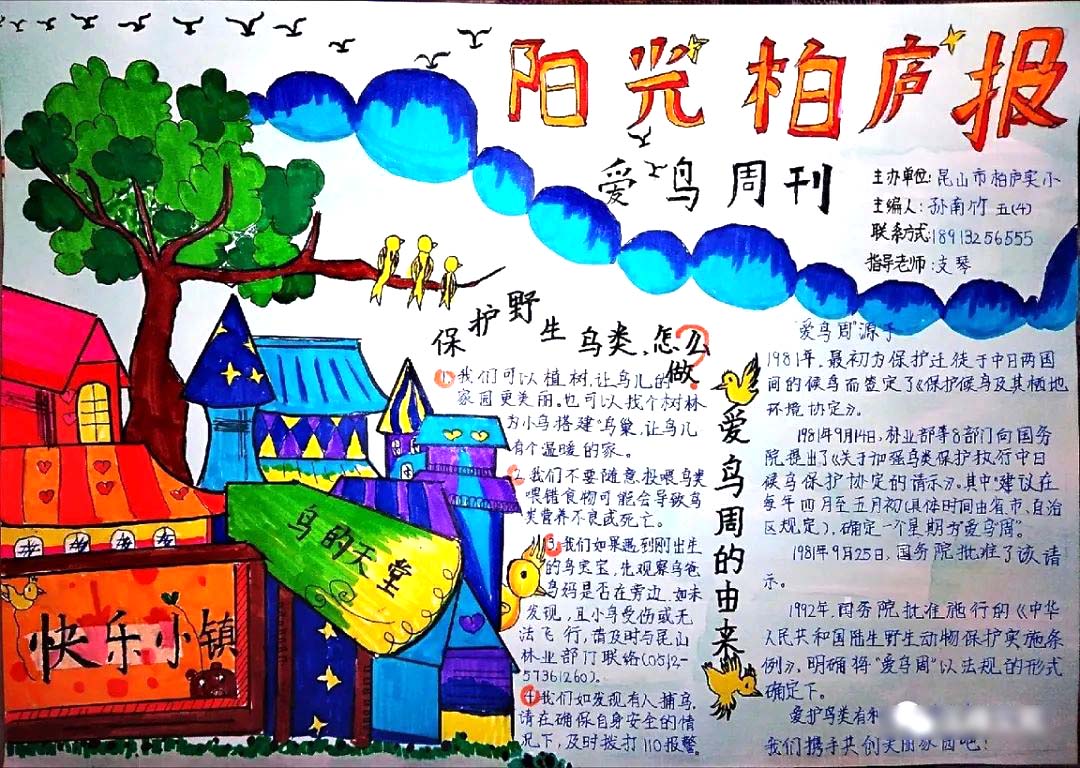 阳光柏庐报
爱鸟周刊
主办单位:昆山市柏庐实小
主编人:孙南竹 五(4)
联系方式:18913256555
指导老师:支琴
保护野生鸟类,怎么做?
1.我们可以植树,让鸟儿的
家园更美丽。也可以找个树林
为小鸟搭建鸟巢,让鸟儿
有个温暖的家。
2.我们不要随意投喂鸟类
喂错食物可能会导致鸟
类营养不良或死亡。
3.我们如果遇到刚出生
的鸟宝宝,先观察鸟爸
鸟妈是否在旁边.如未
发现,且小鸟受伤或无
法飞行,请及时与昆山
林业部门联络(0512-
57361260)。
4.我们如发现有人捕鸟,
请在确保自身安全的情
况下,及时拨打110报警。
爱鸟周的由来
"爱鸟周"源于
1981年,最初为保护迁徙于中日两国
间的候鸟而签定了《保护候鸟及其栖地
环境协定》。
1981年9月14日,林业部等8部门向国务
院提出了《关于加强鸟类保护执行中日
候鸟保护协定的请示》。其中"建议在
每年四月至五月初(具体时间由省、市、自治
区规定),确定一个星期为爱鸟周"。
1981年9月25日,国务院批准了该请
示。
1992年,国务院批准施行的《中华
人民共和国陆生野生动物保护实施条
例》,明确将"爱鸟周"以法规的形式
确定下。
爱护鸟类有
我们携手共创美丽家园吧!
鸟的天堂
快乐小镇